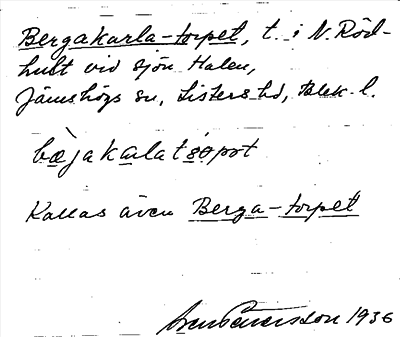 Bergakarla-torpet, t. i N. Röd-
hult vid sjön Halen,
Jämshögs sn, Listers hd, Blek. l.
bæjakarlatsopot
Kallas även Berga-torpet
1936